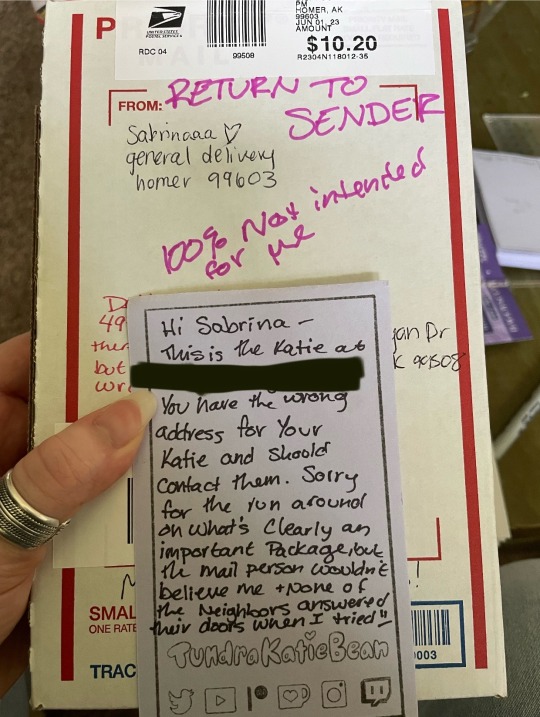 P
UNITED STATES
POSTAL SERVICE
RDC 04
99508
PM
HOMER, AK
99603
JUN 01, 23
AMOUNT
$10.20
R2304N118012-35
FROM:
RETURN TO
SENDER
Sabrinaaa
general delivery
homer 99603
100% Not intended
for me
49
but
yan Dr
99508
Hi Sabrina –
This is the Katie at
You have the wrong
address for Your
Katie and should
Contact them. Sorry
for the run around
on what's Clearly an
important Package, but
the mail person wouldn't
believe me + None of
the Neighbors answered
their doors when I tried!!
TundraKatieBean
SMAL
ONE RATE
TRAC
003